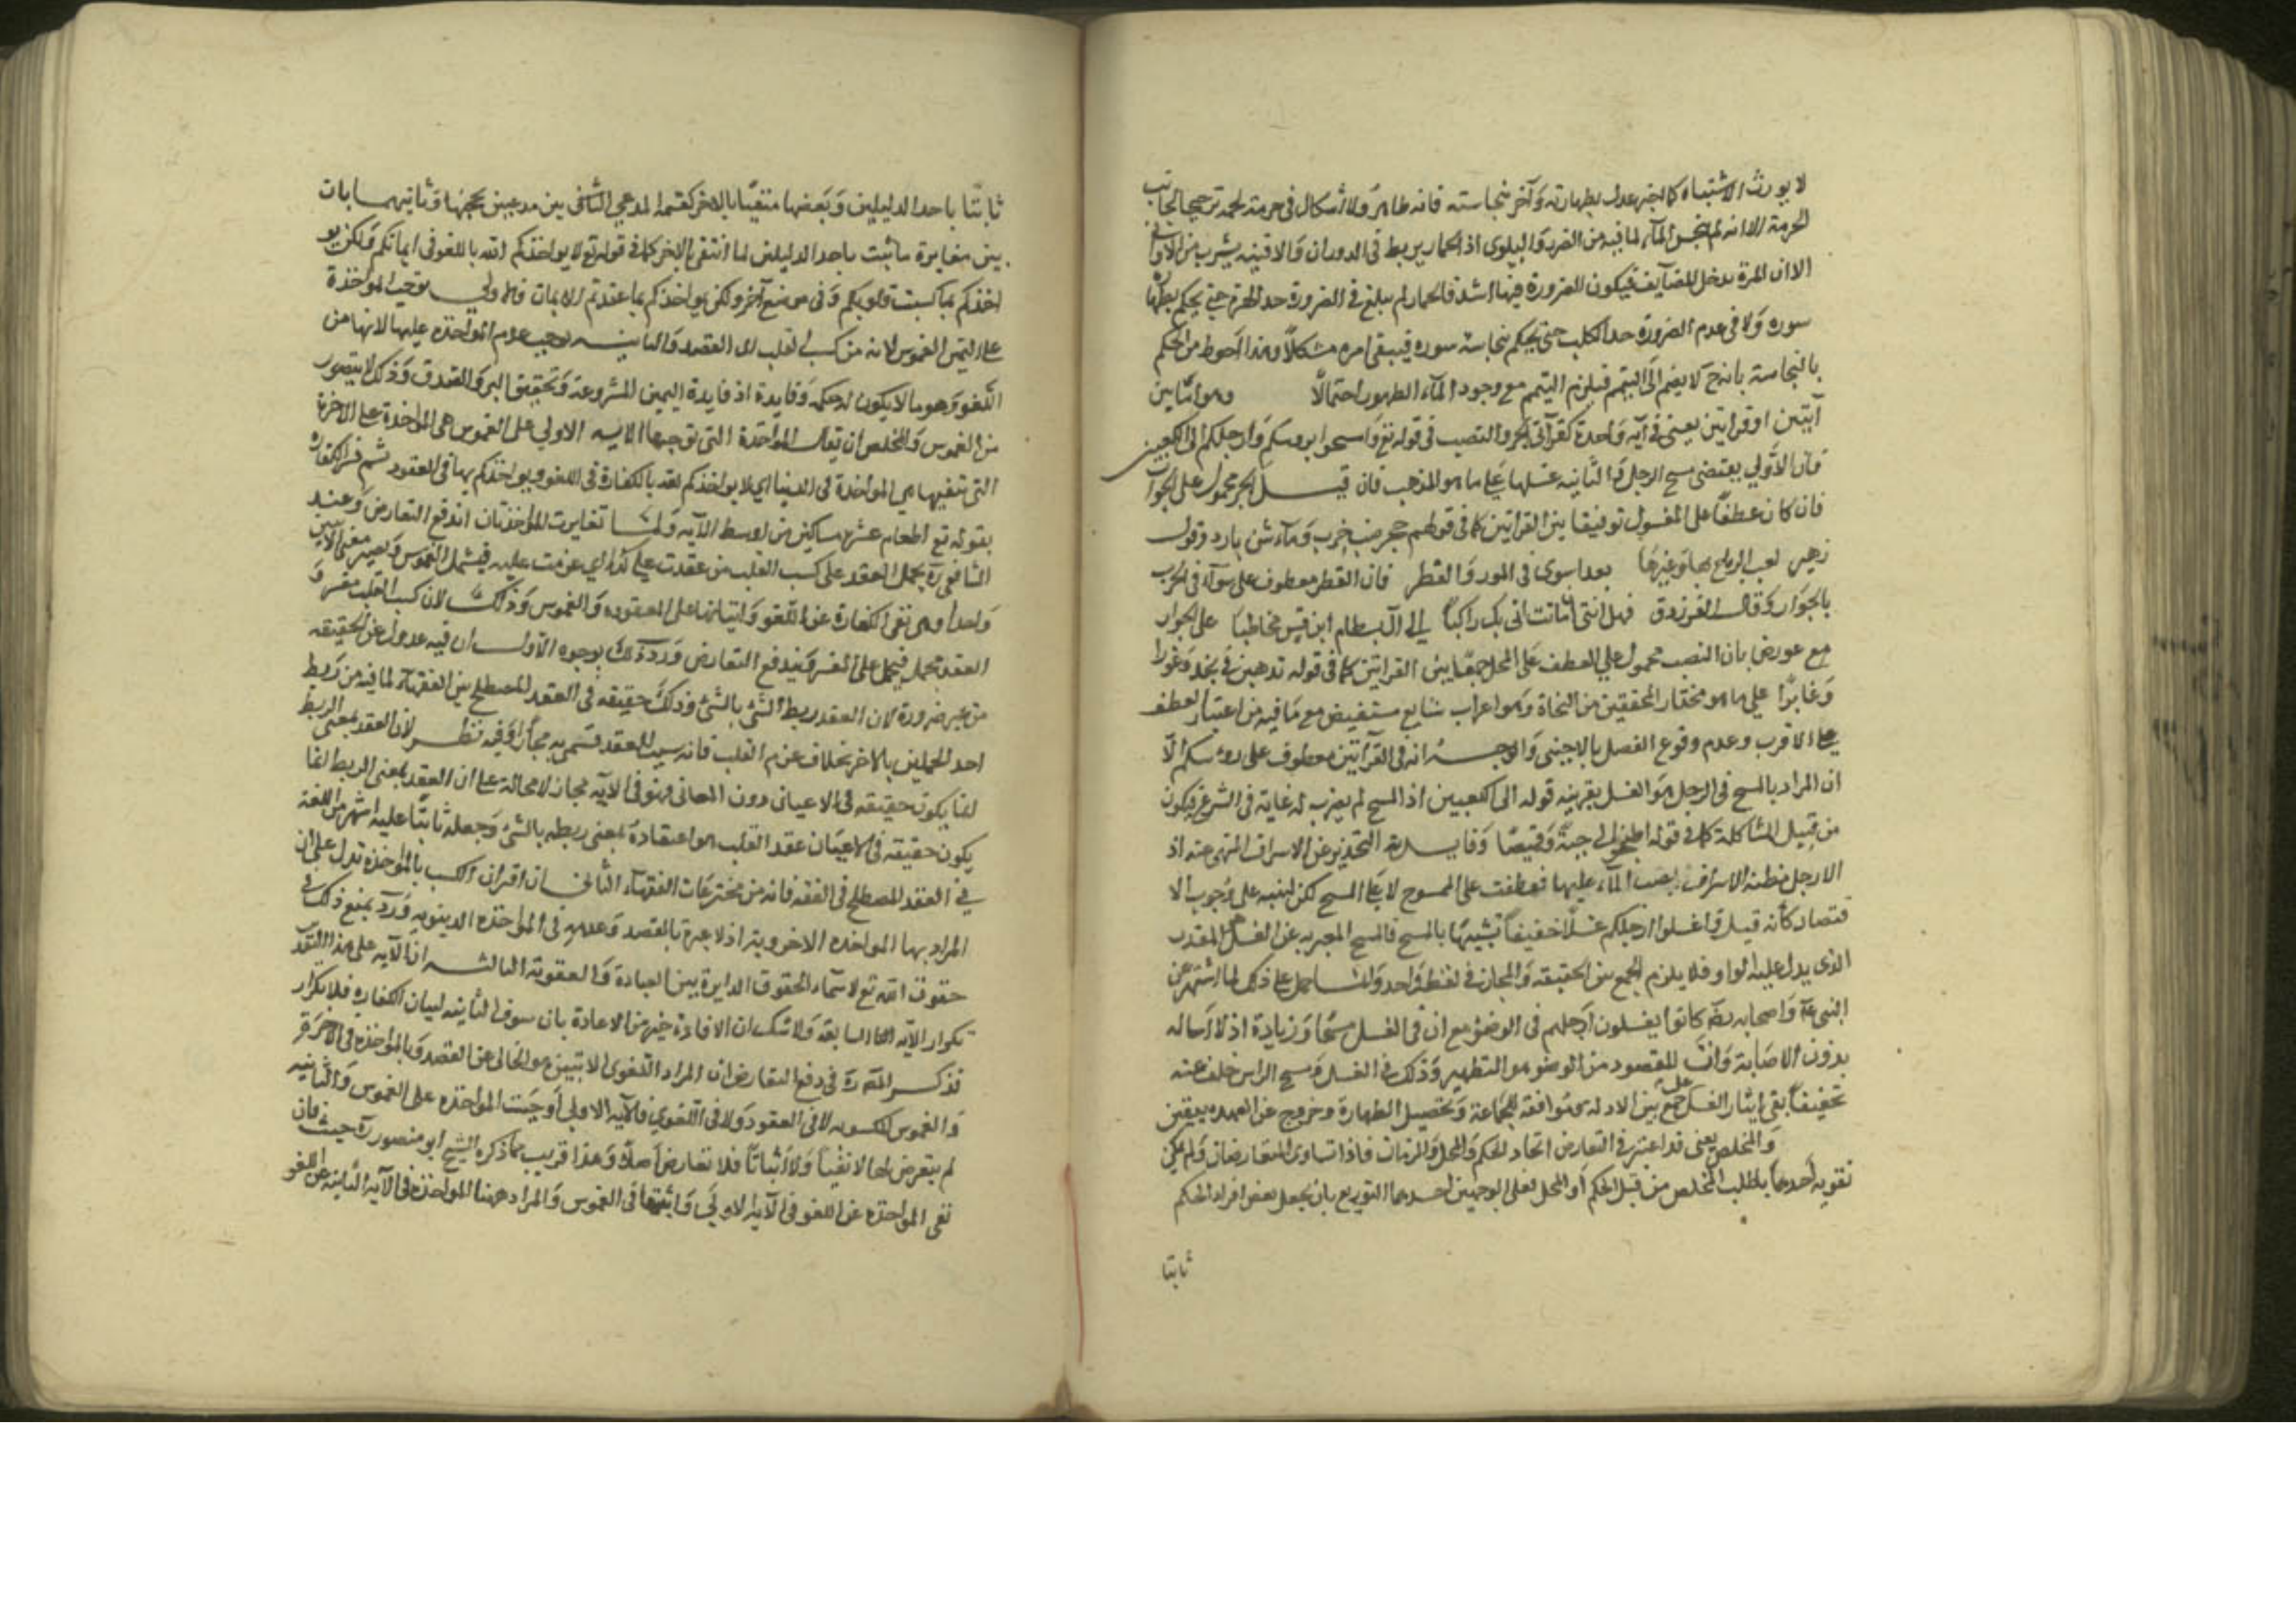 لا يورث الاشتباه كما اخبر عدل بطهارته وآخر بنجاسته فانه طاهر ولا اشكال في حرمة لحمه ترجيحا لجانب
الحرمة الا انه لم ينجس المآء لما فيه من الضرورة والبلوى اذ الحمار يربط في الدور والافنية يشرب من الاواني
الا ان الهرة تدخل المضايق فيكون الضرورة فيها اشد فالحمار لم يبلغ في الضرورة حد الهرة حتى يحكم بطهارة
سوره ولا في عدم الضرورة حد الكلب حتى يحكم بنجاسة سوره فيبقى امره مشكلا وهذا احوط من الحكم
بالنجاسة بانه ح لا يضم الى التيمم فيلزم التيمم مع وجود المآء الطهور احتمالا وهو اما بين
آيتين او قراتين يعني في آية واحدة كقرآتي الجر والنصب في قوله تع وامسحوا بروسكم وارجلكم الى الكعبين
فان الاولي يقتضي مسح الرجل والثانية غسلها على ما هو المذهب فان قيل الجر محمول على الجوار
فان كان عطفا على المغسول توفيقا بين القراتين كما في قولهم جحر ضب خرب ومآء شن بارد وقول
زهير لعب الرياح بها وغيرها بعدا سوى في المور والقطر فان القطر معطوف على سوآ في الحرب
بالجوار وقال الفرزدق فهل انت ان ماتت اتانك راكبا الى آل بسطام ابن قيس مخاطبا على الجوار
مع عورض بان النصب محمول على العطف على المحل جمعا بين القراتين كما في قوله تذهبن في نجد وغورا
وغابرا على ما هو مختار المحققين من النحاة وهو اعراب شايع مستفيض مع ما فيه من اعتبار العطف
على الاقرب وعدم وقوع الفصل بالاجنبي والوجه انه في القرآتين معطوف على روسكم الا
ان المراد بالمسح في الرجل هو الغسل بقرينة قوله الى الكعبين اذ المسح لم يضرب له غاية في الشرع فيكون
من قبيل المشاكلة كما في قوله اطبخوا لي جبة وقميصا وفايدته التحذير عن الاسراف المنهي عنه اذ
الارجل مظنة الاسراف بصب المآء عليها فعطفت على الممسوح لا على المسح لكن لينبه على وجوب الا
قتصاد كأنه قيل واغسلوا ارجلكم غسلا خفيفا شبيها بالمسح فالمسح المعبر به عن الغسل هو المقدر
الذي يدل عليه الواو فلا يلزم الجمع بين الحقيقة والمجاز في لفظ واحد وانما حمل على ذلك لما اشتهر من
النبي عم واصحابه رضه كانوا يغسلون ارجلهم في الوضوء مع ان في الغسل مسحا وزيادة اذ لا اسالة
بدون الاصابة وان المقصود من الوضو هو التطهير وذلك في الغسل ومسح الراس خلف عنه
تخفيفا ففي ايثار الغسل جمع بين الادلة وموافقة للجماعة وتحصيل الطهارة وخروج عن العهدة بيقين
والمخلص يعني قد اعتبر في التعارض اتحاد الحكم والمحل والزمان فاذا تساوى المتعارضان ولم يمكن
تقوية احدهما يطلب المخلص من قبل الحكم او المحل فعلى الوجهين احدهما التوزيع بان يجعل بعض افراد الحكم
ثابتا
ثابتا باحد الدليلين وبعضها منتفيا بالاخر كقسمة المدعي الثاني بين مدعيين بحجتها وثانيهما بيان
بين مغايرة ما ثبت باحد الدليلين لما انتفى بالاخر كما في قوله تع لا يواخذكم الله باللغو في ايمانكم ولكن يو
اخذكم بما كسبت قلوبكم وفي موضع آخر ولكن يواخذكم بما عقدتم الايمان فالاولى يوجب المواخذة
على اليمين الغموس لانه من كسب القلب اى القصد والثانية يوجب عدم المواخذة عليها لانها من
اللغو وهو ما لا يكون له حكمه وفايدة اذ فايدة اليمين المشروعة وتحقيق البر والصدق وذلك لا يتصور
من الغموس والمخلص ان يقال المواخذة التي توجبها الاية الاولي على الغموس هي المواخذة في الاخرة
التى تنفيها هي المواخذة في الدنيا اي لا يواخذكم الله بالكفارة في اللغو ويواخذكم بها في العقود ثم فسر الكفارة
بقوله تع اطعام عشرة مساكين من اوسط الآية ولما تغايرت المواخذتان اندفع التعارض وعند
الشافعي رح يحمل العقد على كسب القلب من عقدت على كذا اي عزمت عليه فيشمل الغموس ويصير معنى الآيتين
واحدا وهو نفي الكفارة عن اللغو واثباتها على المعقودة والغموس وذلك لان كسب القلب مفسر و
العقد مجمل فيحمل على المفسر فيندفع التعارض ورد ذلك بوجوه الاول ان فيه عدولا عن الحقيقة
من غير ضرورة لان العقد ربط الشئ بالشئ وذلك حقيقة في العقد المصطلح بين الفقهآء لما فيه من ربط
احد الكلامين بالاخر بخلاف عزم القلب فانه سبب للعقد فسمي به مجازا وفيه نظر لان العقد بمعنى الربط
انما يكون حقيقة في الاعيان دون المعاني فهو في الآية مجاز لا محالة على ان العقد بمعنى الربط انما
يكون حقيقة في الاعيان عقد القلب هو اعتقاده بمعنى ربطه بالشئ وجعله ثابتا عليه اشهر من اللغة
في العقد المصطلح في الفقه فانه من مخترعات الفقهآء الثاني ان اقتران الكسب بالمواخذة تدل على ان
المراد بها المواخذة الاخروية اذ لا عبرة بالقصد وعدمه في المواخذة الدنيوية ورد بمنع ذلك في
حقوق الله تع لا سيما في الحقوق الدايرة بين العبادة والعقوبة الثالث ان الآية على هذا التقدير
تكرار الآية السابقة ولا شك ان الافادة خير من الاعادة بان سوق الثانية لبيان الكفارة فلا تكرار
فذكر المص رح في دفع التعارض ان المراد اللغو في الايتين هو الخالي عن القصد وبالمواخذة في الاخرة
والغموس المكسوبة لا في العقود ولا في اللغو فالآية الاولى اوجبت المواخذة على الغموس والثانية
لم يتعرض لها لا نفيا ولا اثباتا فلا تعارض اصلا وهذا قريب مما ذكره الشيخ ابو منصور رح حيث قال
نفى المواخذة عن اللغو في الآية الاولى واثبتها في الغموس والمراد ههنا المواخذة في الآية الثانية عن اللغو